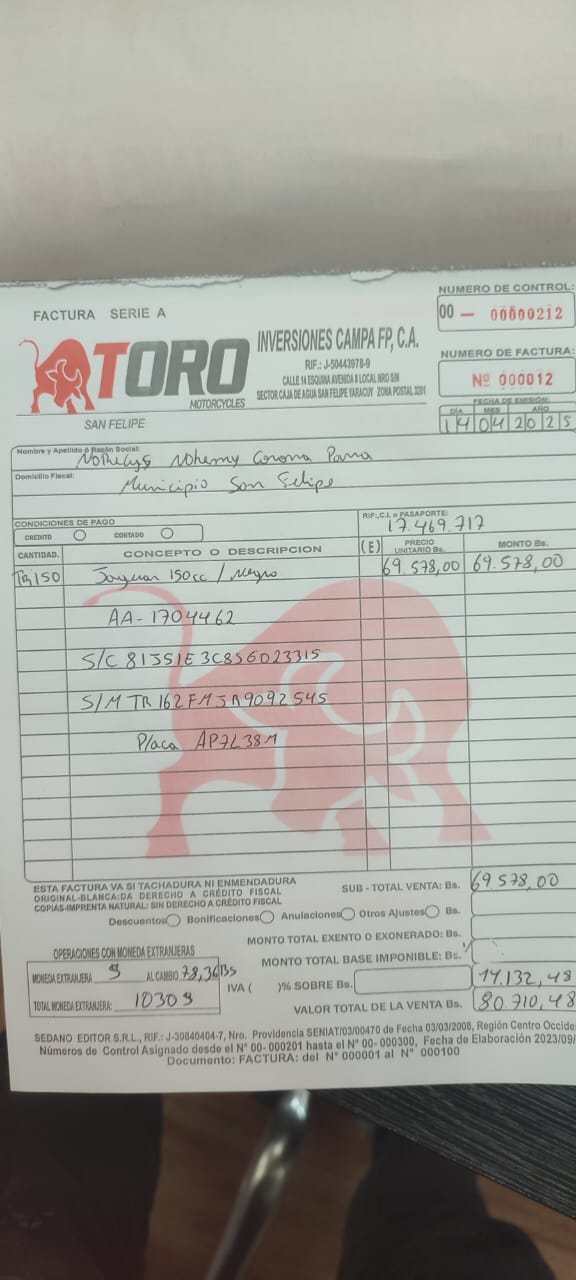 NUMERO DE CONTROL:
FACTURA SERIE A
00 — 00000212
TORO
MOTORCYCLES
SAN FELIPE
INVERSIONES CAMPA FP, C.A.
RIF.: J-50443978-9
CALLE 14 ESQUINA AVENIDA 8 LOCAL NRO S/N
SECTOR CAJA DE AGUA SAN FELIPE YARACUY ZONA POSTAL 3201
NUMERO DE FACTURA:
Nº 000012
FECHA DE EMISIÓN:
DÍA MES AÑO
14 04 2025
Nombre y Apellido ó Razón Social:
Nohemy Corona Parra
Domicilio Fiscal:
Municipio San Felipe
CONDICIONES DE PAGO
CREDITO CONTADO
RIF.,C.I. o PASAPORTE:
17.469.717
CANTIDAD. CONCEPTO O DESCRIPCION (E) PRECIO UNITARIO Bs. MONTO Bs.
TR150 Jaguar 150cc / Negro 69.578,00 69.578,00
AA-1704462
S/C 81351E3C8S6023315
S/M TR162FMJRA9092545
Placa AP7L38M
ESTA FACTURA VA SI TACHADURA NI ENMENDADURA
ORIGINAL-BLANCA:DA DERECHO A CRÉDITO FISCAL
COPIAS-IMPRENTA NATURAL: SIN DERECHO A CRÉDITO FISCAL
SUB - TOTAL VENTA: Bs. 69.578,00
Descuentos Bonificaciones Anulaciones Otros Ajustes Bs.
MONTO TOTAL EXENTO O EXONERADO: Bs.
OPERACIONES CON MONEDA EXTRANJERAS
MONTO TOTAL BASE IMPONIBLE: Bs.
MONEDA EXTRANJERA $ AL CAMBIO 78,36Bs
IVA ( )% SOBRE Bs. 11.132,48
TOTAL MONEDA EXTRANJERA: 1030$
VALOR TOTAL DE LA VENTA Bs. 80.710,48
SEDANO EDITOR S.R.L., RIF.: J-30840404-7, Nro. Providencia SENIAT/03/00470 de Fecha 03/03/2008, Región Centro Occide
Números de Control Asignado desde el N° 00- 000201 hasta el N° 00- 000300, Fecha de Elaboración 2023/09/
Documento: FACTURA: del N° 000001 al N° 000100